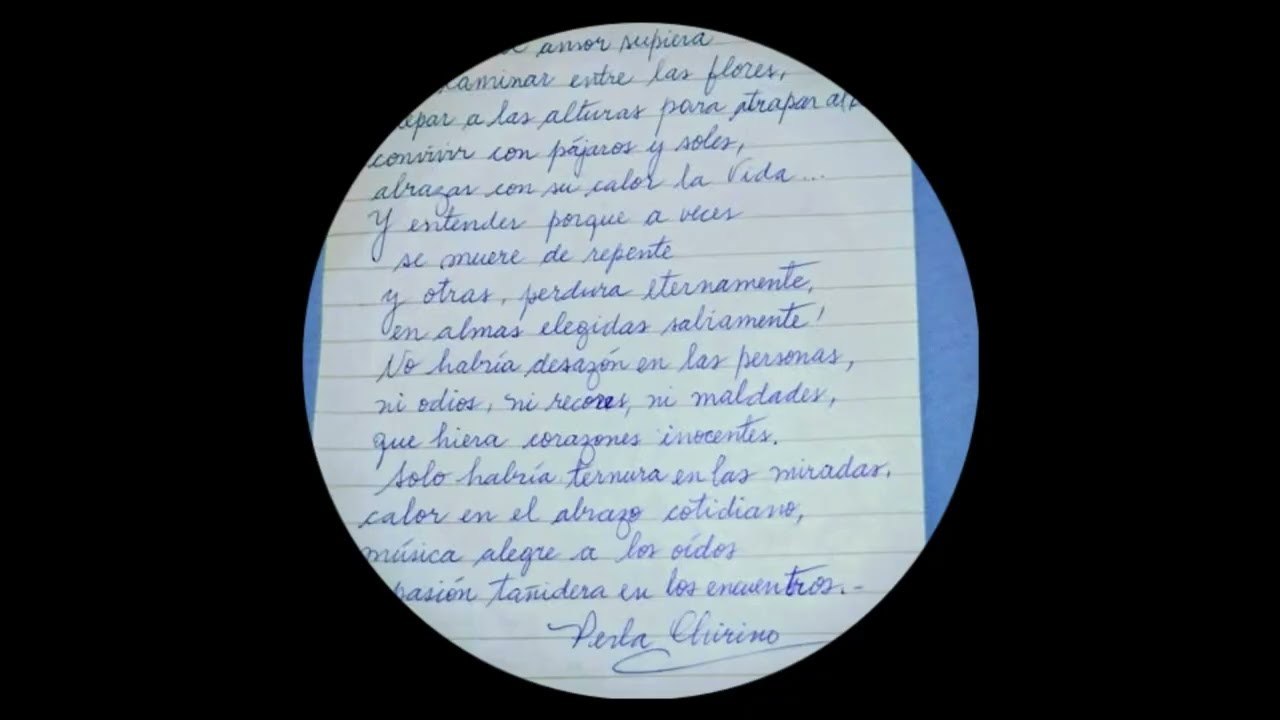 amor supiera
caminar entre las flores,
a las alturas para atrapar
convivir con pájaros y soles,
abrazar con su calor la vida...
Y entender porque a veces
se muere de repente
y otras, perdura eternamente,
en almas elegidas sabiamente!
No habría desazón en las personas,
ni odios, ni recores, ni maldades,
que hiera corazones inocentes.
Solo habría ternura en las miradas.
calor en el abrazo cotidiano,
música alegre a los oídos
pasión tañidera en los encuentros.-
Perla Chirino